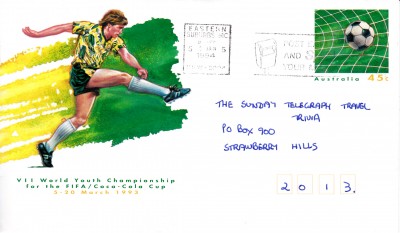 EASTERN
SUBURBS MC
1994
Australia 45c
THE SUNDAY TELEGRAPH TRAVEL
TRIVIA
PO BOX 900
STRAWBERRY HILLS
2013.
VII World Youth Championship
for the FIFA/Coca-Cola Cup
5-20 March 1993